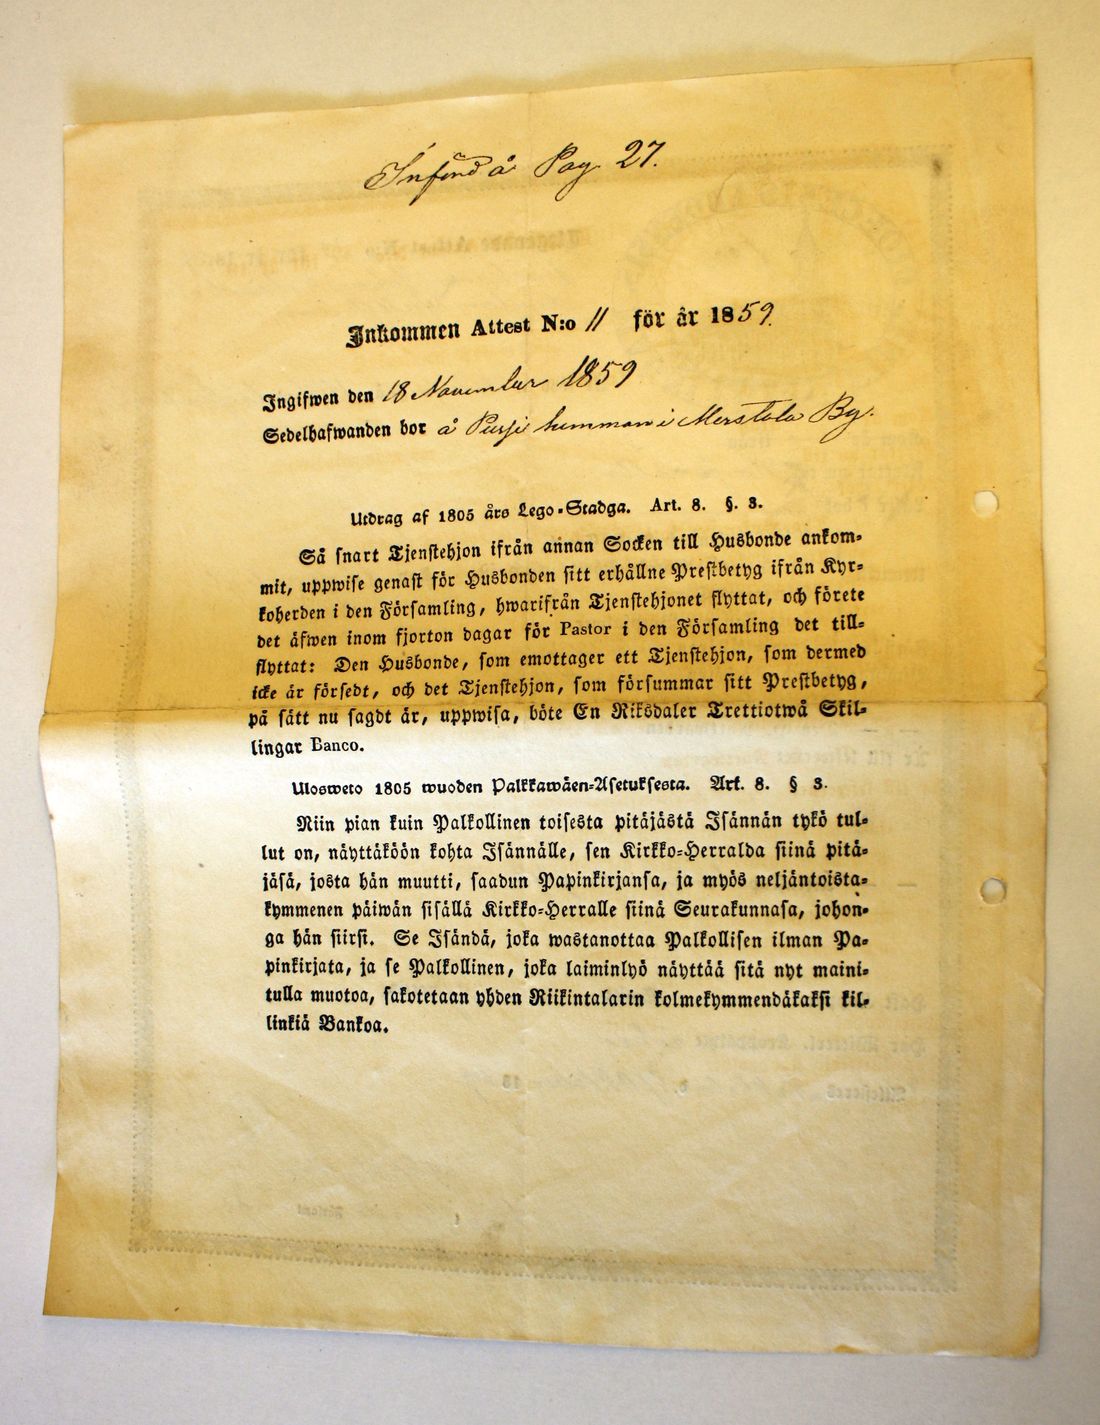 Införd å Pag. 27.
Inkommen Attest N:o 11 för år 1859.
Ingifwen den 18 November 1859
Sedelhafwanden bor å Pursi hemman i Merstola By.
Utdrag af 1805 års Lego-Stadga. Art. 8. §. 3.
Så snart Tjenstehjon ifrån annan Socken till Husbonde ankom-
mit, uppwise genast för Husbonden sitt erhållne Prestbetyg ifrån Kyr-
koherden i den Församling, hwarifrån Tjenstehjonet flyttat, och förete
det äfwen inom fjorton dagar för Pastor i den Församling det till-
flyttat: Den Husbonde, som emottager ett Tjenstehjon, som dermed
icke är försedt, och det Tjenstehjon, som försummar sitt Prestbetyg,
på sätt nu sagdt är, uppwisa, böte En Riksdaler Trettiotwå Skil-
lingar Banco.
Ulosweto 1805 wuoden Palkkawäen-Asetuksesta. Art. 8. § 3.
Niin pian kuin Palkollinen toisesta pitäjästä Isännän tykö tul-
lut on, näyttäköön kohta Isännälle, sen Kirkko-Herralda siinä pitä-
jäsä, josta hän muutti, saadun Papinkirjansa, ja myös neljäntoista-
kymmenen päiwän sisällä Kirkko-Herralle siinä Seurakunnasa, johon-
ga hän siirsi. Se Isändä, joka wastanottaa Palkollisen ilman Pa-
pinkirjata, ja se Palkollinen, joka laiminlyö näyttää sitä nyt maini-
tulla muotoa, sakotetaan yhden Riikintalarin kolmekymmendäkaksi kil-
linkiä Bankoa.